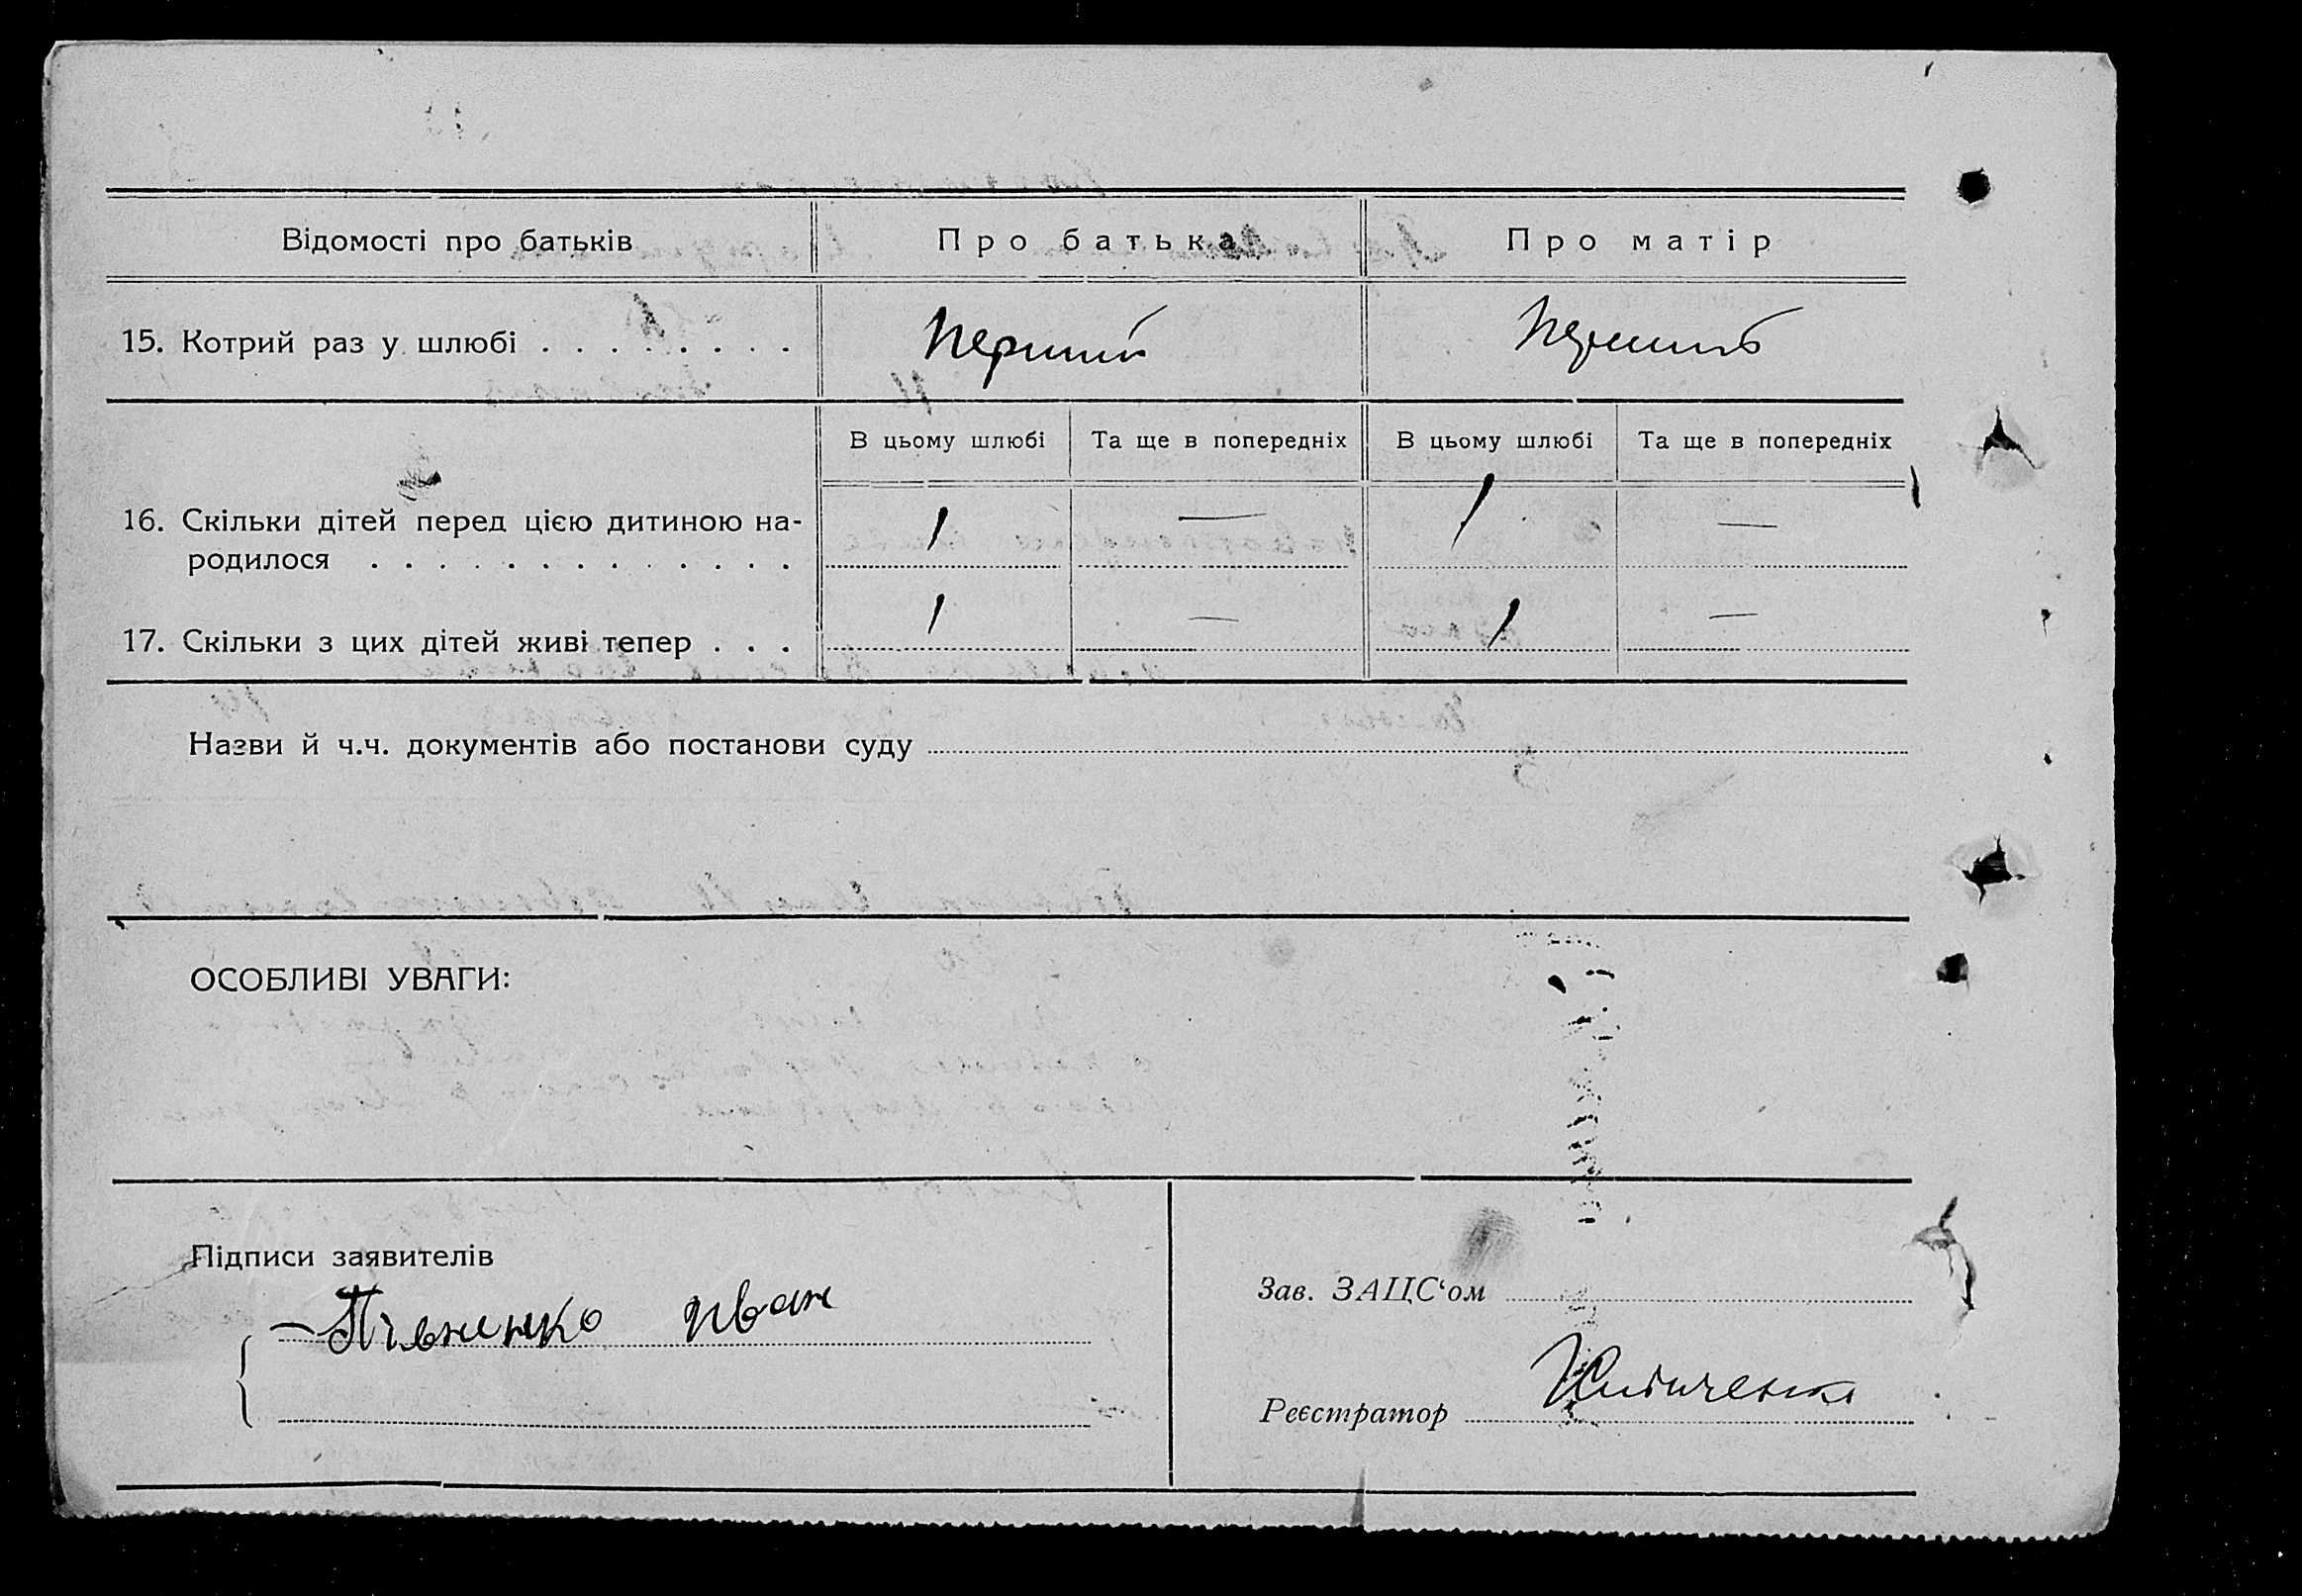 Відомості про батьків Про батька Про матір
15. Котрий раз у шлюбі . . . . . . . . Перший Перший
В цьому шлюбі Та ще в попередніх В цьому шлюбі Та ще в попередніх
16. Скільки дітей перед цією дитиною на-
родилося . . . . . . . . . . . . . 1 — 1 —
17. Скільки з цих дітей живі тепер . . . 1 — 1 —
Назви й ч.ч. документів або постанови суду
ОСОБЛИВІ УВАГИ:
Підписи заявителів
Півненко Иван
Зав. ЗАЦС‘ом
Реєстратор